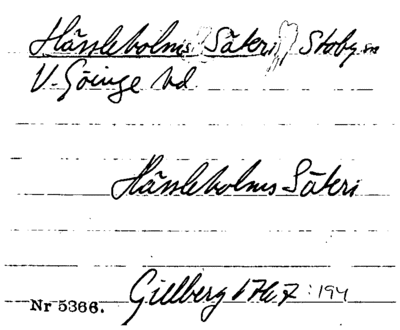 Hässleholms Säteri, Stoby sn
V. Göinge hd
Hässleholms Säteri
Gillberg 1767 :194
Nr 5366.